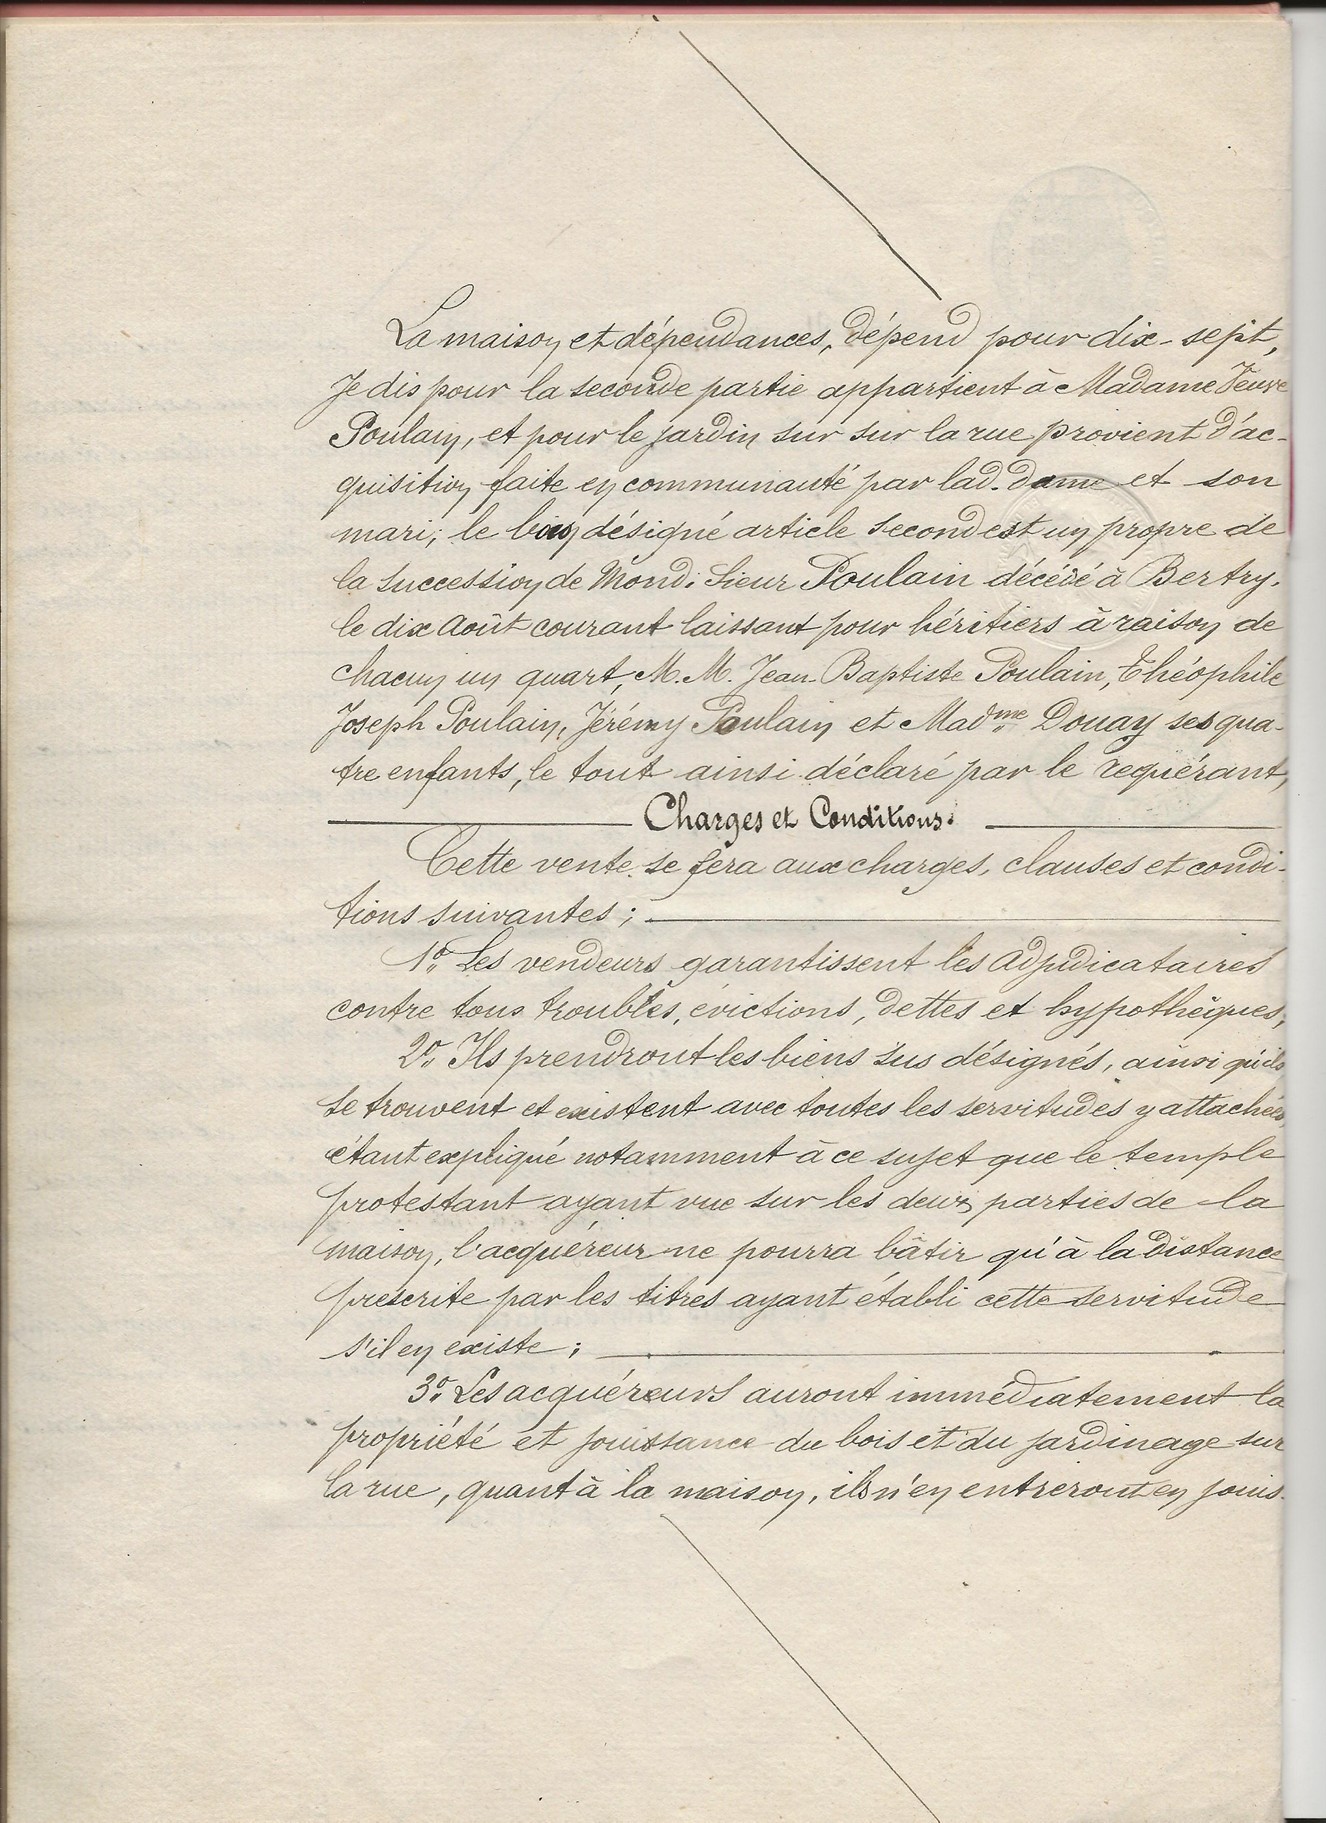 La maison et dépendances, dépend pour dix-sept,
Je dis pour la seconde partie appartient à Madame Veuve
Poulain, et pour le jardin sur sur la rue provient d'ac-
quisition faite en communauté par lad. dame et son
mari; le bien désigné article second est un propre de
la succession de Mond. Sieur Poulain décédé à Bertry.
le dix Août courant laissant pour héritiers à raison de
chacun un quart, M.M. Jean Baptiste Poulain, Théophile
Joseph Poulain, Jérémy Poulain et Madme Douay ses qua-
tre enfants, le tout ainsi déclaré par le requérant,
Charges et Conditions.
Cette vente se fera aux charges, clauses et condi-
tions suivantes;
1o. Les vendeurs garantissent les adjudicataires
contre tous troubles, évictions, dettes et hypothèques,
2o. Ils prendront les biens sus désignés, ainsi qu'ils
se trouvent et existent avec toutes les servitudes y attachées
étant expliqué notamment à ce sujet que le temple
protestant ayant vue sur les deux parties de la
maison, l'acquéreur ne pourra bâtir qu'à la distance
prescrite par les titres ayant établi cette servitude
s'il en existe;
3o. Les acquéreurs auront immédiatement la
propriété et jouissance du bois et du jardinage sur
la rue, quant à la maison, ils n'en entreront en jouis-